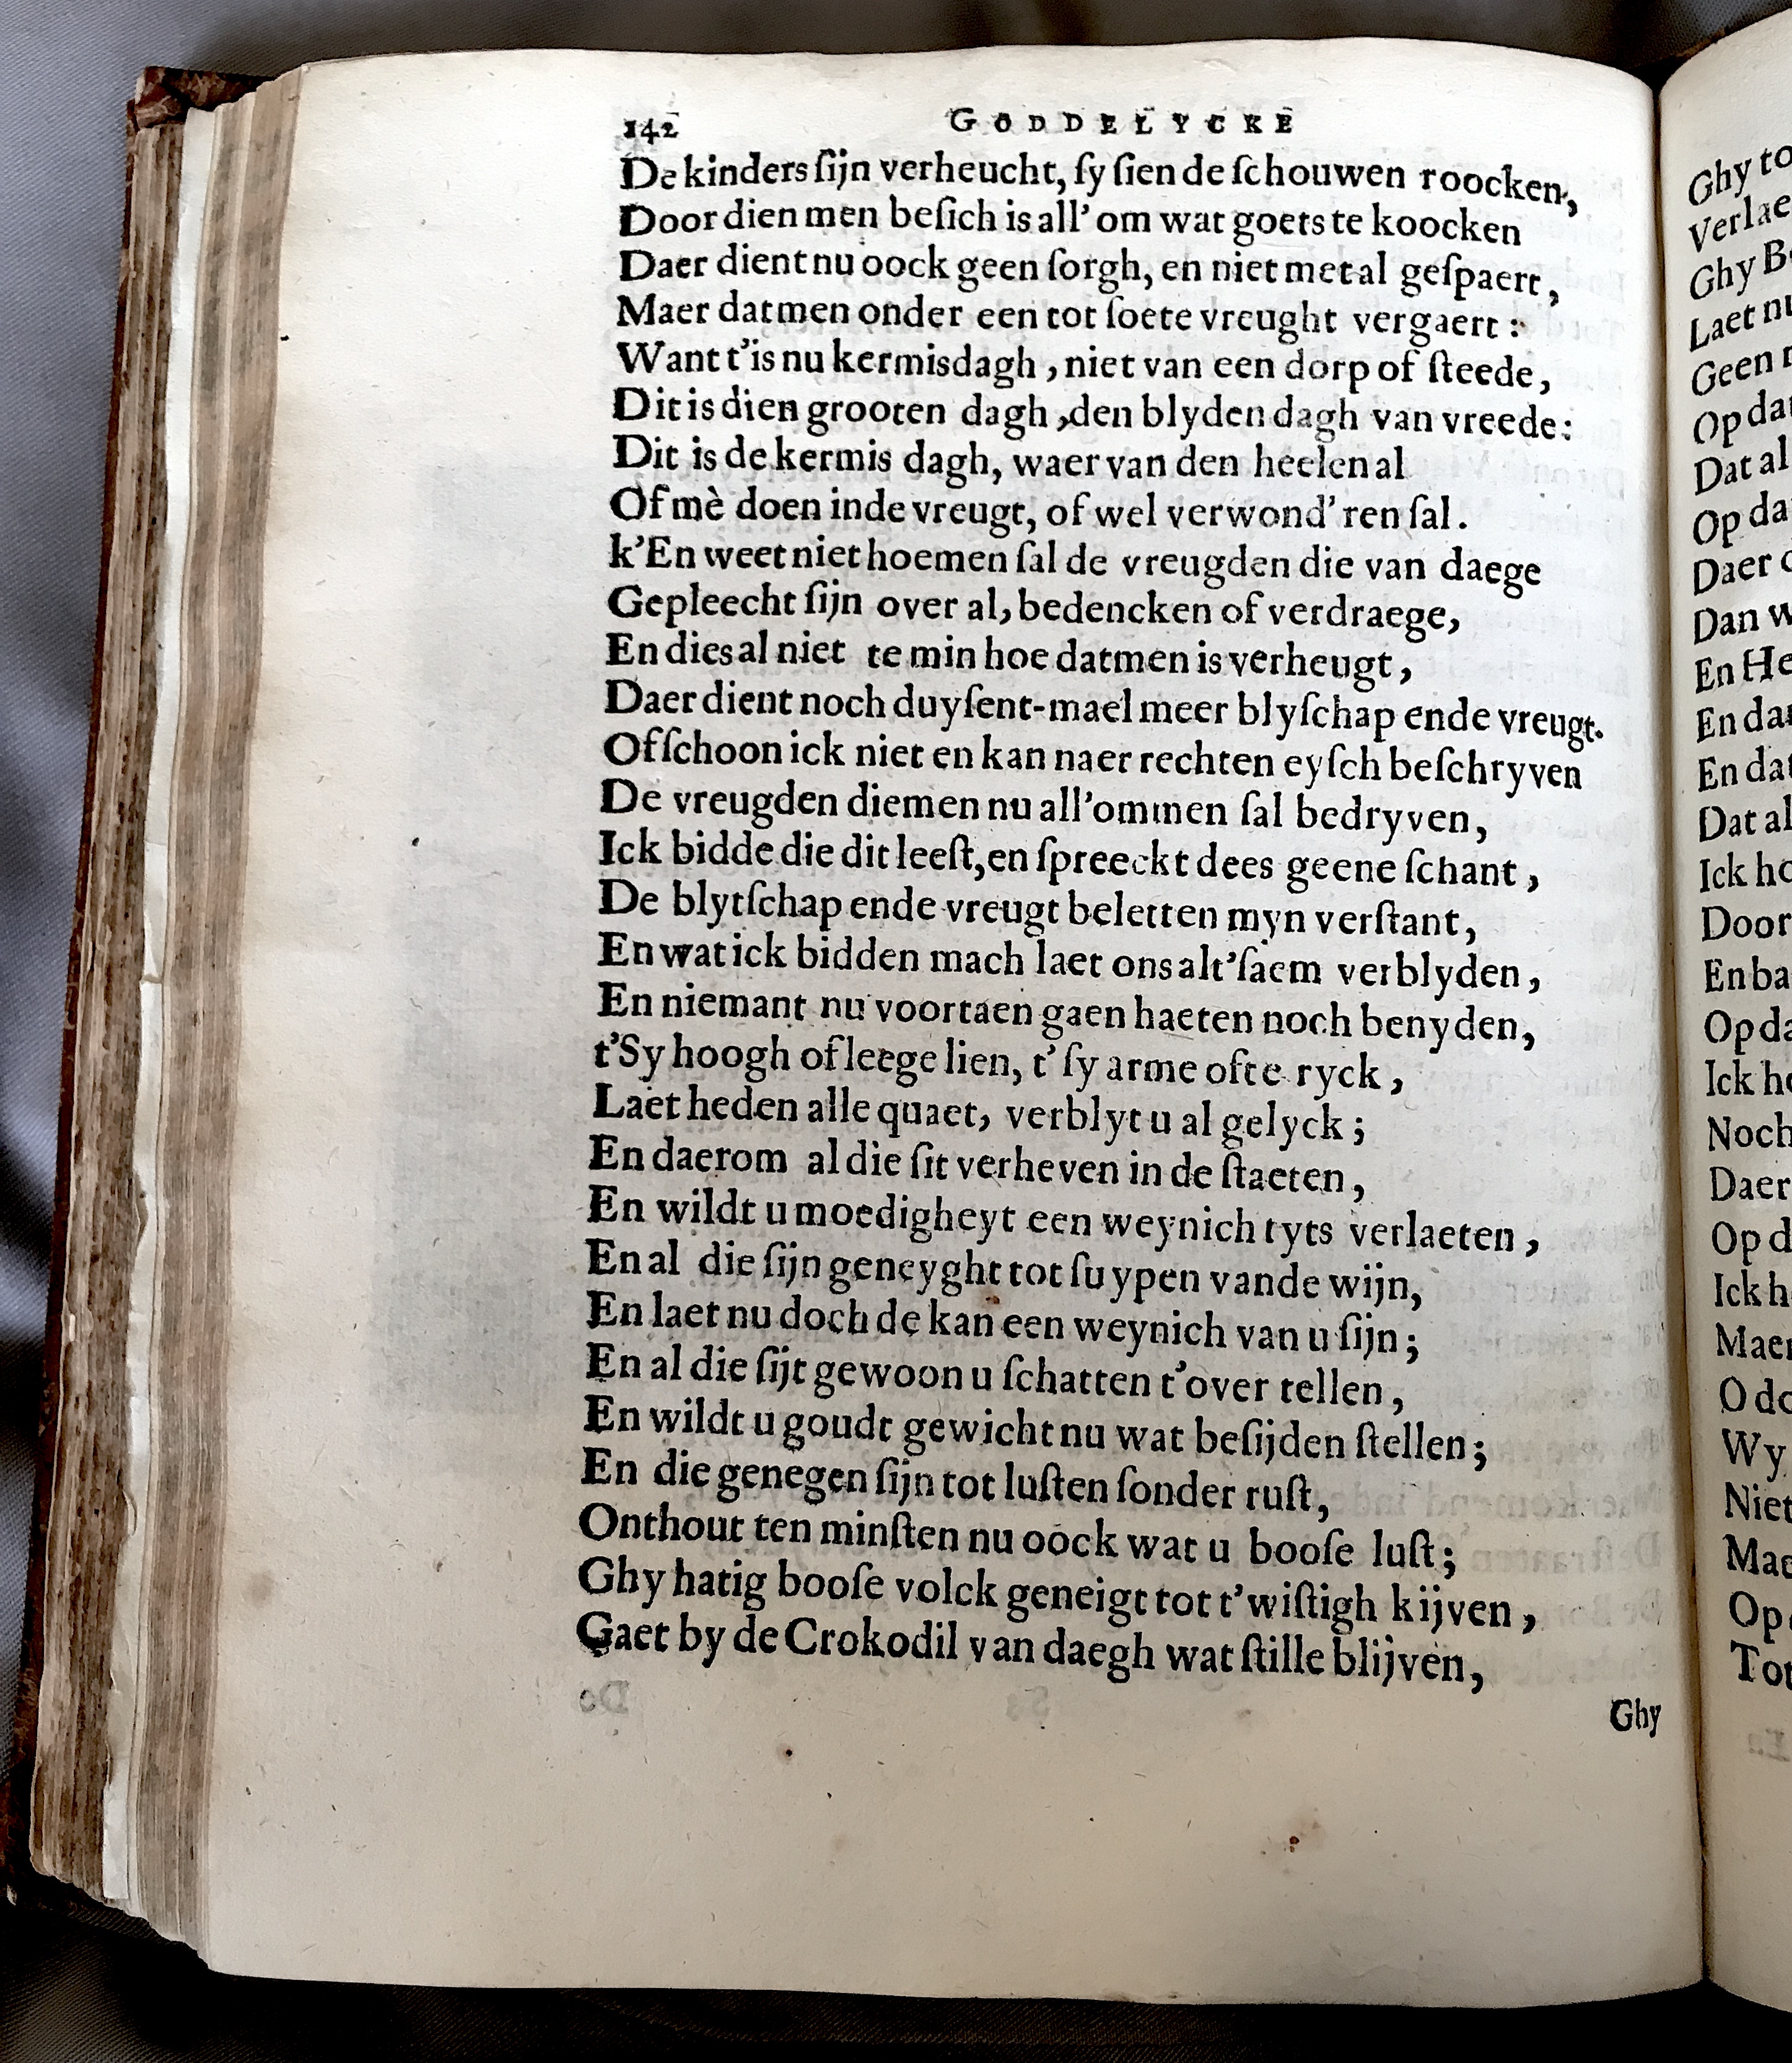 142 GODDELYCKE
De kinders ſijn verheucht, ſy ſien de ſchouwen roocken,
Door dien men beſich is all' om wat goets te koocken
Daer dient nu oock geen ſorgh, en niet met al geſpaert,
Maer datmen onder een tot ſoete vreught vergaert:
Want t'is nu kermisdagh, niet van een dorp of ſteede,
Dit is dien grooten dagh, den blyden dagh van vreede:
Dit is de kermis dagh, waer van den heelen al
Of mè doen inde vreugt, of wel verwond'ren ſal.
k'En weet niet hoemen ſal de vreugden die van daege
Gepleecht ſijn over al, bedencken of verdraege,
En dies al niet te min hoe datmen is verheugt,
Daer dient noch duyſent-mael meer blyſchap ende vreugt.
Ofſchoon ick niet en kan naer rechten eyſch beſchryven
De vreugden diemen nu all'ommen ſal bedryven,
Ick bidde die dit leeſt, en ſpreeckt dees geene ſchant,
De blytſchap ende vreugt beletten myn verſtant,
En wat ick bidden mach laet ons alt'ſaem verblyden,
En niemant nu voortaen gaen haeten noch benyden,
t'Sy hoogh of leege lien, t'ſy arme ofte ryck,
Laet heden alle quaet, verblyt u al gelyck;
En daerom al die ſit verheven in de ſtaeten,
En wildt u moedigheyt een weynich tyts verlaeten,
En al die ſijn geneyght tot ſuypen vande wijn,
En laet nu doch de kan een weynich van u ſijn;
En al die ſijt gewoon u ſchatten t'over tellen,
En wildt u goudt gewicht nu wat beſijden ſtellen;
En die genegen ſijn tot luſten ſonder ruſt,
Onthout ten minſten nu oock wat u booſe luſt;
Ghy hatig booſe volck geneigt tot t'wiſtigh kijven,
Gaet by de Crokodil van daegh wat ſtille blijven,
Ghy
Ghy
Verlae
Ghy
Laet
Geen
Op
Dat al
Op
Daer
Dan
En
En
En
Dat al
Ick
Door
En
Op
Ick
Noch
Daer
Op
Ick
Maer
O
Wy
Niet
Op